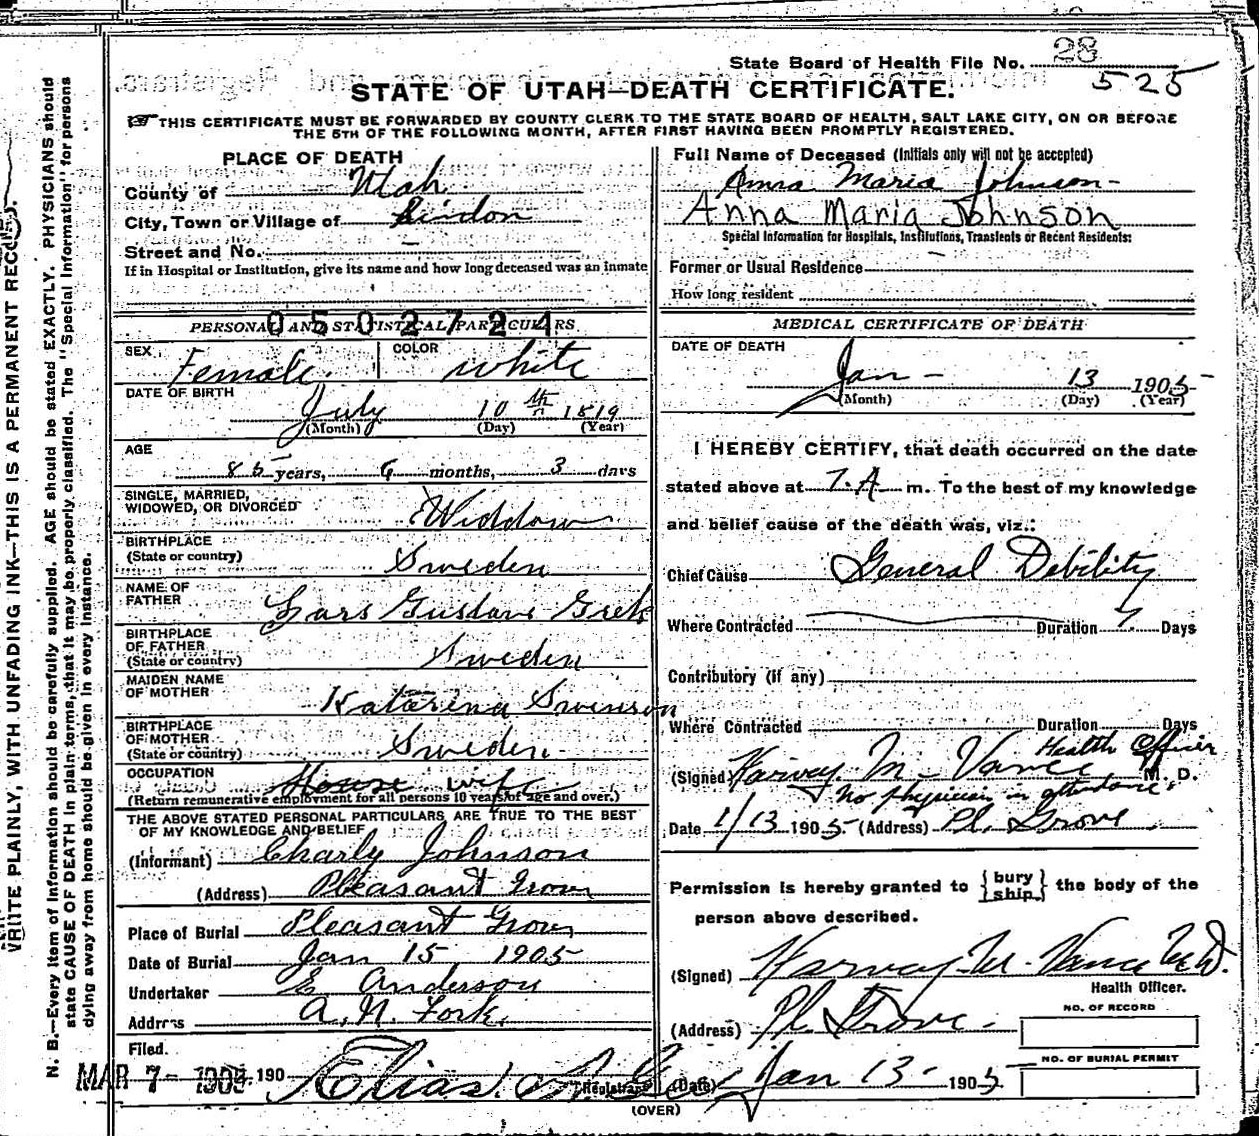 State Board of Health File No. 28
525
STATE OF UTAH—DEATH CERTIFICATE.
THIS CERTIFICATE MUST BE FORWARDED BY COUNTY CLERK TO THE STATE BOARD OF HEALTH, SALT LAKE CITY, ON OR BEFORE
THE 5TH OF THE FOLLOWING MONTH, AFTER FIRST HAVING BEEN PROMPTLY REGISTERED.
WRITE PLAINLY, WITH UNFADING INK—THIS IS A PERMANENT RECORD.
N. B.—Every item of information should be carefully supplied. AGE should be stated EXACTLY. PHYSICIANS should
state CAUSE OF DEATH in plain terms, that it may be properly classified. The "Special Information" for persons
dying away from home should be given in every instance.
PLACE OF DEATH
County of Utah
City, Town or Village of Lindon
Street and No.
If in Hospital or Institution, give its name and how long deceased was an inmate
0502724
PERSONAL AND STATISTICAL PARTICULARS
SEX Female. COLOR white
DATE OF BIRTH July 10th 1819
(Month) (Day) (Year)
AGE
85 years, 6 months, 3 days
SINGLE, MARRIED,
WIDOWED, OR DIVORCED Widdow
BIRTHPLACE
(State or country) Sweden
NAME OF
FATHER Lars Gustave
BIRTHPLACE
OF FATHER
(State or country) Sweden
MAIDEN NAME
OF MOTHER Katarina Swenson
BIRTHPLACE
OF MOTHER
(State or country) Sweden
OCCUPATION House wife
(Return remunerative employment for all persons 10 years of age and over.)
THE ABOVE STATED PERSONAL PARTICULARS ARE TRUE TO THE BEST
OF MY KNOWLEDGE AND BELIEF
(Informant) Charly Johnson
(Address) Pleasant Grove
Place of Burial Pleasant Grove
Date of Burial Jan 15, 1905
Undertaker E Anderson
Address Fork.
Filed.
MAR 7- 190 Elias Registrar
Full Name of Deceased (Initials only will not be accepted)
Anna Maria Johnson
Anna Maria Johnson
Special Information for Hospitals, Institutions, Transients or Recent Residents:
Former or Usual Residence
How long resident
MEDICAL CERTIFICATE OF DEATH
DATE OF DEATH
Jan 13 1905
(Month) (Day) (Year)
I HEREBY CERTIFY, that death occurred on the date
stated above at 7.A m. To the best of my knowledge
and belief cause of the death was, viz.:
Chief Cause General Debility
Where Contracted Duration 7 Days
Contributory (if any)
Where Contracted Duration Days
Health Officer
(Signed) Harvey M. Vance M. D.
No physician in attendance.
Date 1/13 1905. (Address) Pl. Grove
Permission is hereby granted to {bury ship} the body of the
person above described.
(Signed) Harvey M. Vance M.D.
Health Officer.
(Address) Pl Grove.
NO. OF RECORD
NO. OF BURIAL PERMIT
(Date) Jan 13 1905
(OVER)